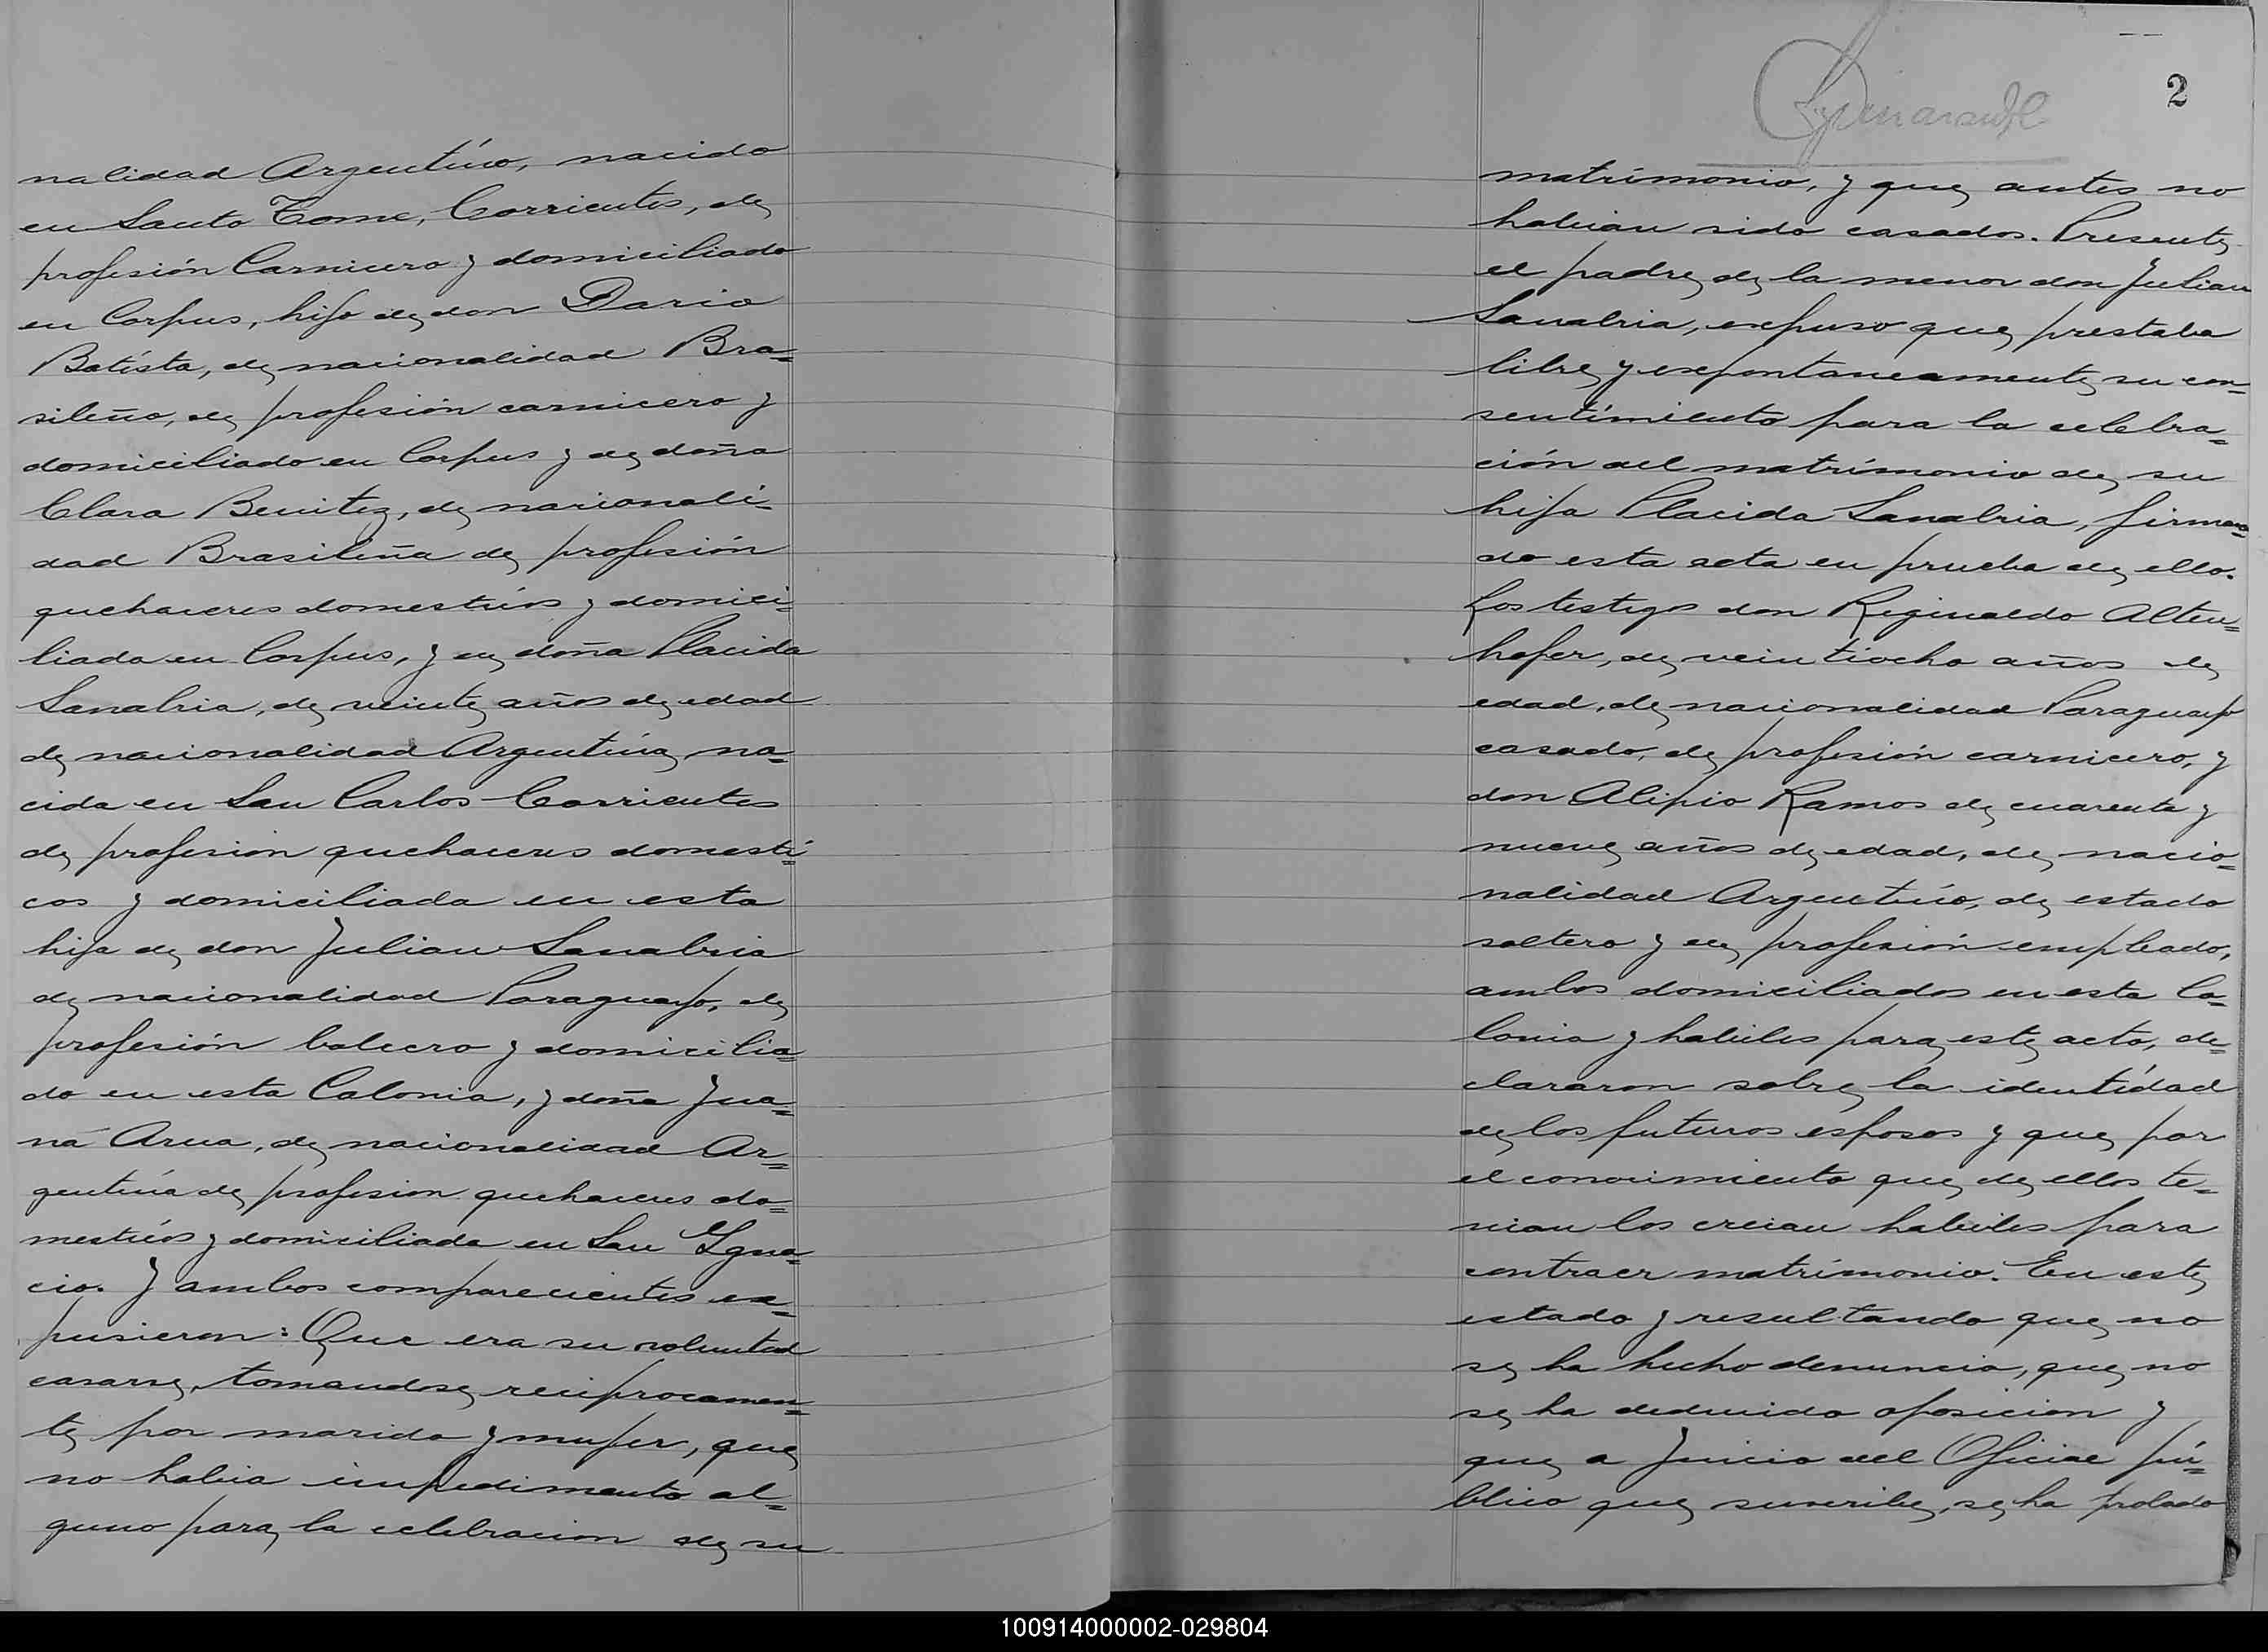 nalidad Argentino, nacido
en Santo Tome, Corrientes, de
profesión Carnicero y domiciliado
en Corpus, hijo de don Dario
Batista, de nacionalidad Bra=
sileño, de profesión carnicero y
domiciliado en Corpus y de doña
Clara Benitez, de nacionali=
dad Brasileña de profesión
quehaceres domesticos y domici=
liada en Corpus, y de doña Placida
Sanabria, de veinte años de edad
de nacionalidad Argentina, na=
cida en San Carlos Corrientes
de profesion quehaceres domesti=
cos y domiciliada en esta
hija de don Julian Sanabria
de nacionalidad Paraguayo, de
profesión bolcero y domicilia=
do en esta Colonia, y doña Jua=
na Arua, de nacionalidad Ar=
gentina de profesion quehaceres do=
mesticos y domiciliada en San Ygna=
cio. Y ambos comparecientes ex=
pusieron: Que era su voluntad
casarse, tomandose reciprocamen=
te por marido y mujer, que
no habia impedimento al=
guno para la celebracion de su
2
matrimonio, y que antes no
habian sido casados. Presente
el padre de la menor don Julian
Sanabria, expuso que prestaba
libre y expontaneamente su con=
sentimiento para la celebra=
ción del matrimonio de su
hija Placida Sanabria, firman=
do esta acta en prueba de ello.
Los testigos don Reginaldo Alten=
hofer, de veintiocho años de
edad, de nacionalidad Paraguayo
casado, de profesión carnicero, y
don Alipio Ramos de cuarenta y
nueve años de edad, de nacio=
nalidad Argentino, de estado
soltero y de profesión empleado,
ambos domiciliados en esta Co=
lonia y habiles para este acto, de=
clararon sobre la identidad
de los futuros esposos y que por
el conocimiento que de ellos te=
nian los creian habiles para
contraer matrimonio. En este
estado y resultando que no
se ha hecho denuncia, que no
se ha deducido oposicion y
que a Juicio del Oficial pú=
blico que suscribe, se ha probado
100914000002-029804